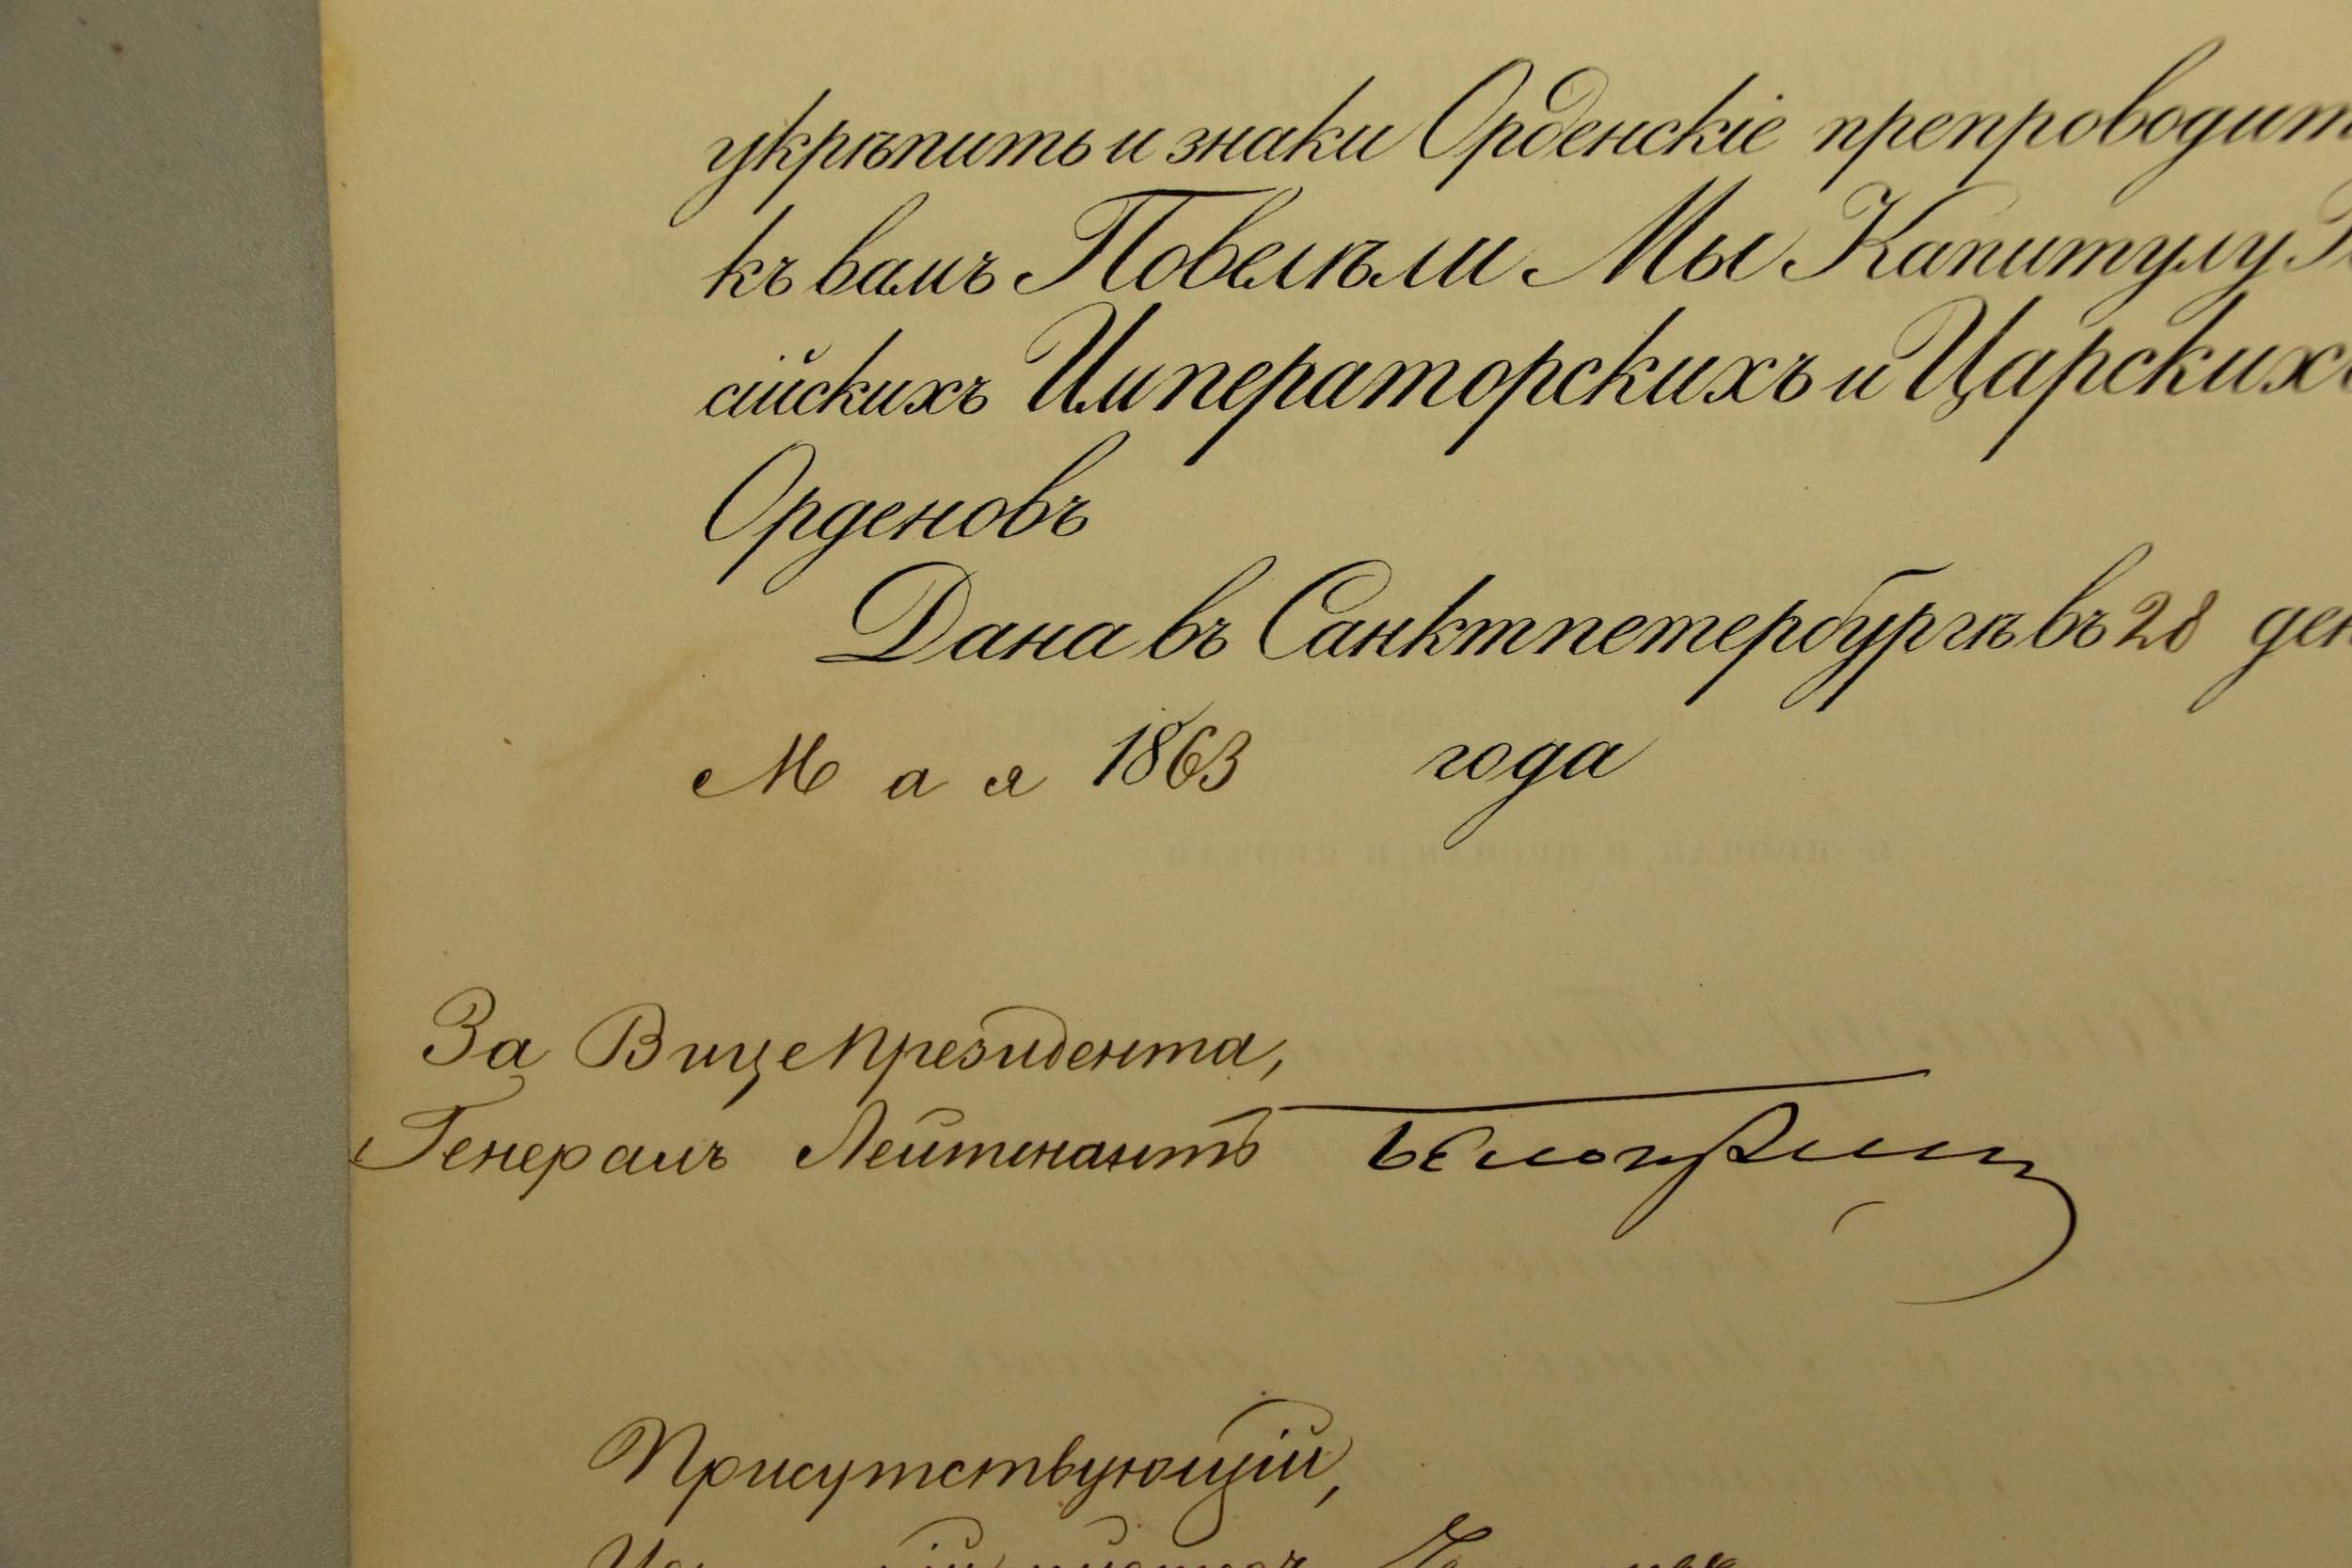 укрѣпить и знаки Орденскіе препроводит
къ вамъ Повелѣли Мы Капитулу
сійскихъ Императорскихъ и Царскихъ
Орденовъ
Дана въ Санктпетербургѣ въ 28 ден
Мая 1863 года
За ВицеПрезидента,
Генералъ Лейтенантъ
Присутствующій,